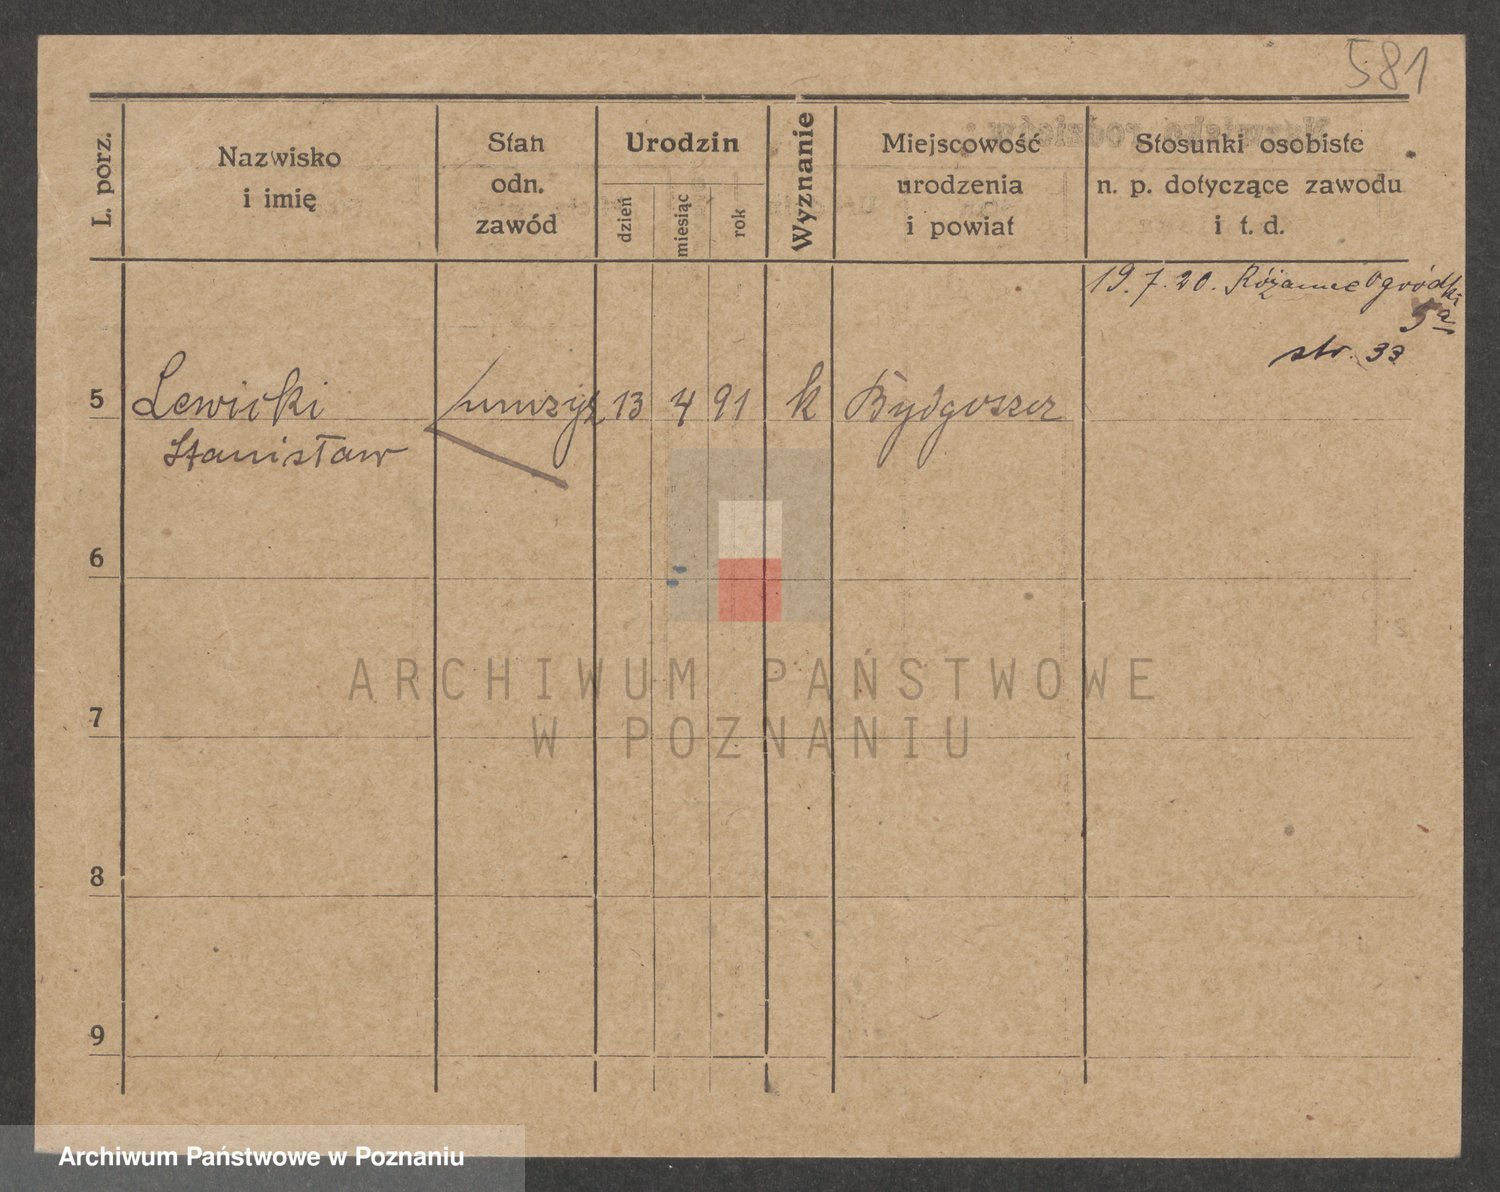 581
L. porz.
Nazwisko
i imię
Stan
odn.
zawód
Urodzin
dzień
miesiąc
rok
Wyznanie
Miejscowość
urodzenia
i powiat
Stosunki osobiste
n. p. dotyczące zawodu
i t. d.
19. 7. 20. Ogródki
5a
str. 33
5
Lewicki
13 4 91 k Bydgoszcz
Stanisław
6
7
8
9
ARCHIWUM PAŃSTWOWE
W POZNANIU
Archiwum Państwowe w Poznaniu